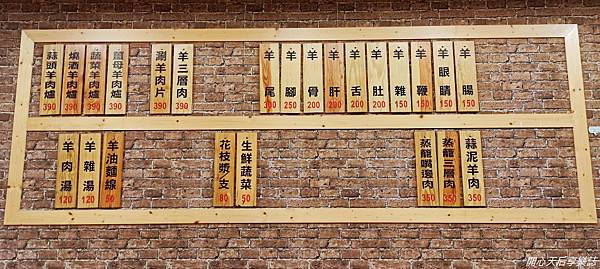 蒜頭羊肉爐 390
燒酒羊肉爐 390
蔬菜羊肉爐 390
薑母羊肉爐 390
涮羊肉片 390
羊三層肉 390
羊尾 300
羊腳 250
羊骨 200
羊肝 200
羊舌 200
羊肚 200
羊雜 150
羊鞭 150
羊眼睛 150
羊腸 150
羊肉湯 120
羊雜湯 120
羊油麵線 50
花枝漿/支 80
生鮮蔬菜 50
蒸籠嘴邊肉 350
蒸籠三層肉 350
蒜泥羊肉 350
開心天后享樂誌